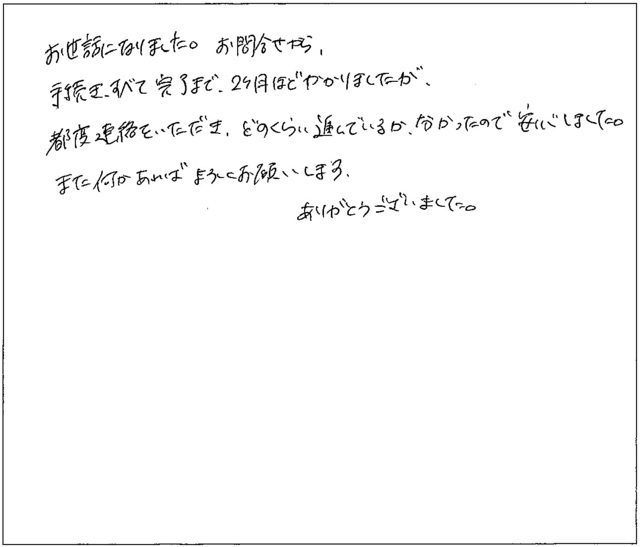 お世話になりました。 お問合せから、
手続き、すべて完了まで、2ヶ月ほどかかりましたが、
都度連絡をいただき、どのくらい進んでいるか、分かったので安心しました。
また何かあればよろしくお願いします。
ありがとうございました。